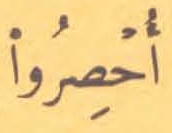 أُحْصِرُوا۟